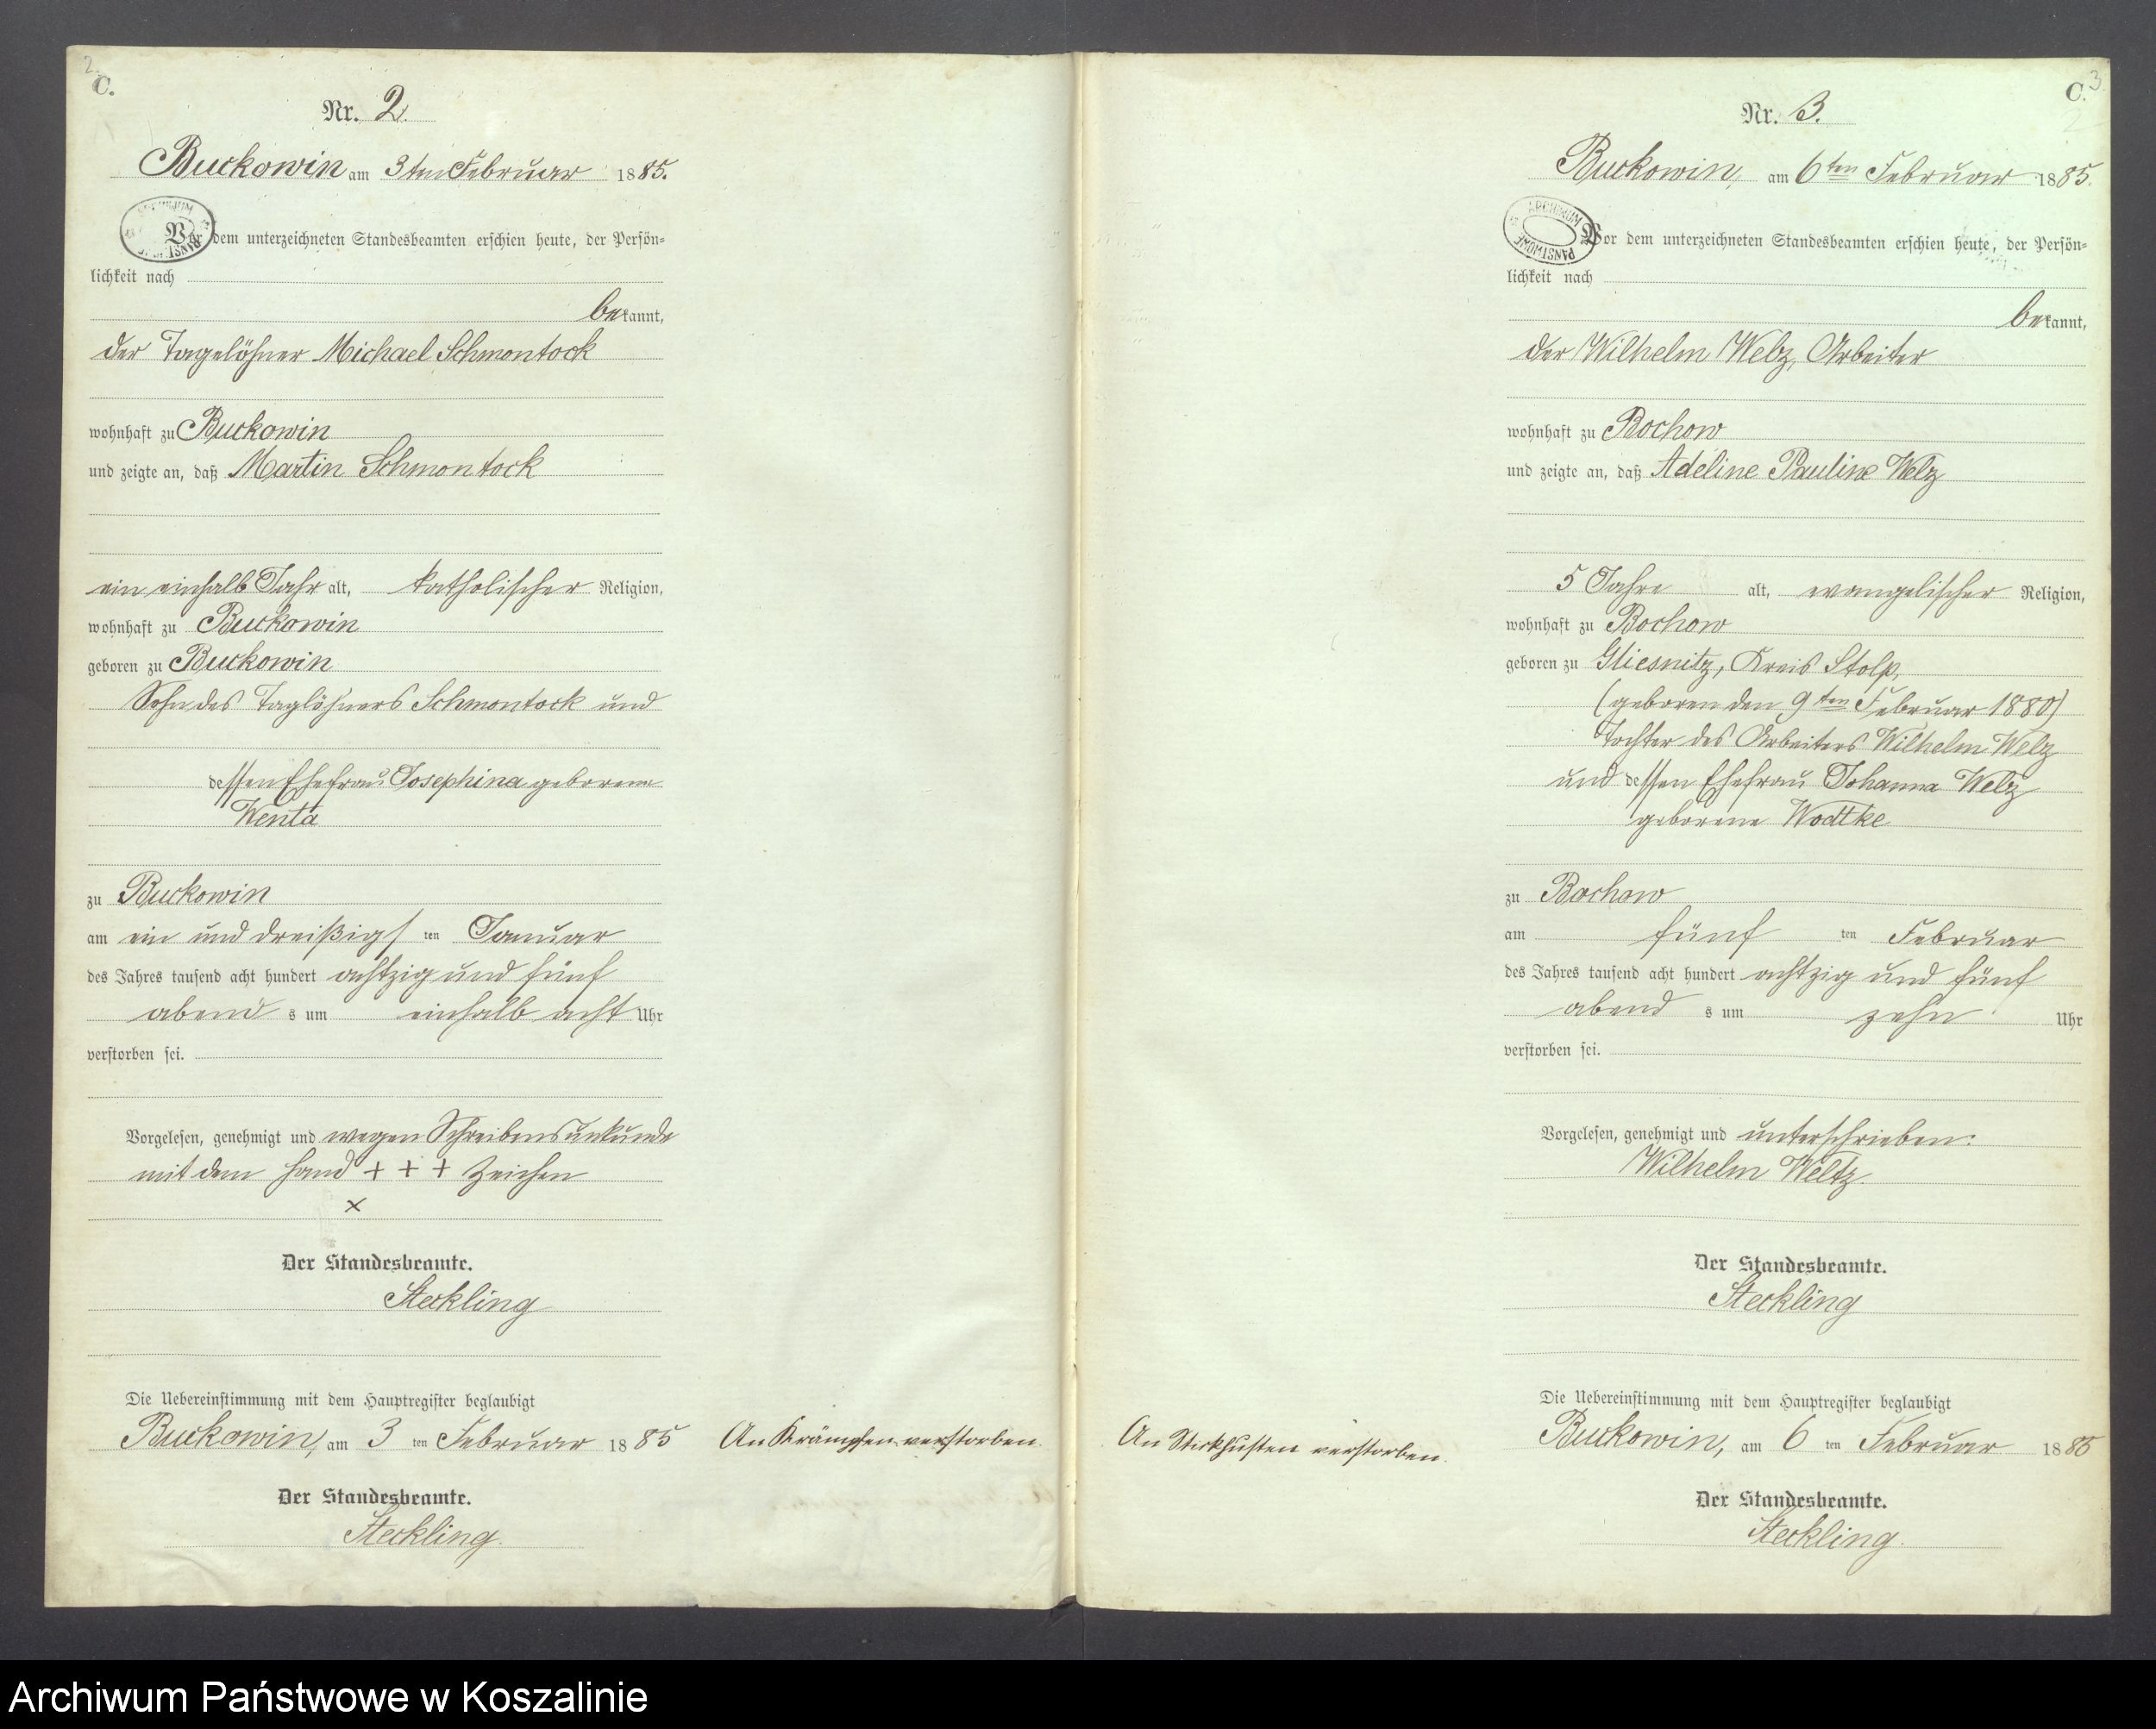 2.
C.
Nr. 2.
Buckowin am 3ten Februar 1885.
Vor dem unterzeichneten Standesbeamten erschien heute, der Persön-
lichkeit nach
bekannt,
der Tagelöhner Michael Schmontock
wohnhaft zu Buckowin
und zeigte an, daß Martin Schmontock
ein einhalb Jahr alt, katholischer Religion,
wohnhaft zu Buckowin
geboren zu Buckowin
Sohn des Taglöhners Schmontock und
dessen Ehefrau Josephina geborene
Wenta
zu Buckowin
am ein und dreißigs ten Januar
des Jahres tausend acht hundert achtzig und fünf
abend s um einhalb acht Uhr
verstorben sei.
Vorgelesen, genehmigt und wegen Schreibensunkunde
mit dem Hand + + + Zeichen
x
Der Standesbeamte.
Steckling
Die Uebereinstimmung mit dem Hauptregister beglaubigt
Buckowin, am 3 ten Februar 1885
Der Standesbeamte.
Steckling.
An Krämpfen verstorben.
3
C.
Nr. 3.
Buckowin, am 6ten Februar 1885.
ARCHIWUM PAŃSTWOWE
Vor dem unterzeichneten Standesbeamten erschien heute, der Persön-
lichkeit nach
bekannt,
der Wilhelm Welz, Arbeiter
wohnhaft zu Bochow
und zeigte an, daß Adeline Pauline Welz
5 Jahre alt, evangelischer Religion,
wohnhaft zu Bochow
geboren zu Gliesnitz, Kreis Stolp,
(geboren den 9ten Februar 1880)
Tochter des Arbeiters Wilhelm Welz
und dessen Ehefrau Johanna Welz
geborene Wodtke
zu Bochow
am fünf ten Februar
des Jahres tausend acht hundert achtzig und fünf
abend s um zehn Uhr
verstorben sei.
Vorgelesen, genehmigt und unterschrieben:
Wilhelm Weltz.
Der Standesbeamte.
Steckling
Die Uebereinstimmung mit dem Hauptregister beglaubigt
Buckowin, am 6 ten Februar 1885
Der Standesbeamte.
Steckling.
An Stickhusten verstorben.
Archiwum Państwowe w Koszalinie